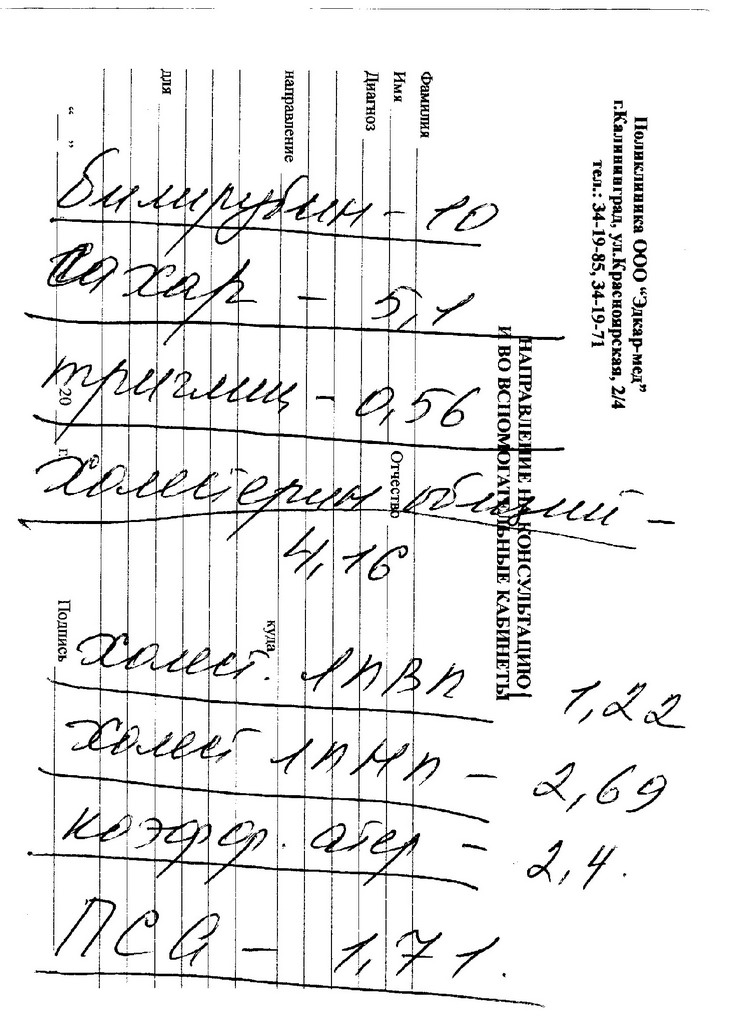 Поликлиника ООО "Эдкар-мед"
г.Калининград, ул.Красноярская, 2/4
тел.: 34-19-85, 34-19-71
НАПРАВЛЕНИЕ НА КОНСУЛЬТАЦИЮ
И ВО ВСПОМОГАТЕЛЬНЫЕ КАБИНЕТЫ
Фамилия
Имя Отчество
Диагноз
направление куда
для
" " 20 г. Подпись
Билирубин - 10
Сахар - 5,1
триглиц - 0,56
Холестерин общий -
4,16
холест. ЛПВП 1,22
холест ЛПНП - 2,69
коэфф. атер - 2,4.
ПСА - 1,71.